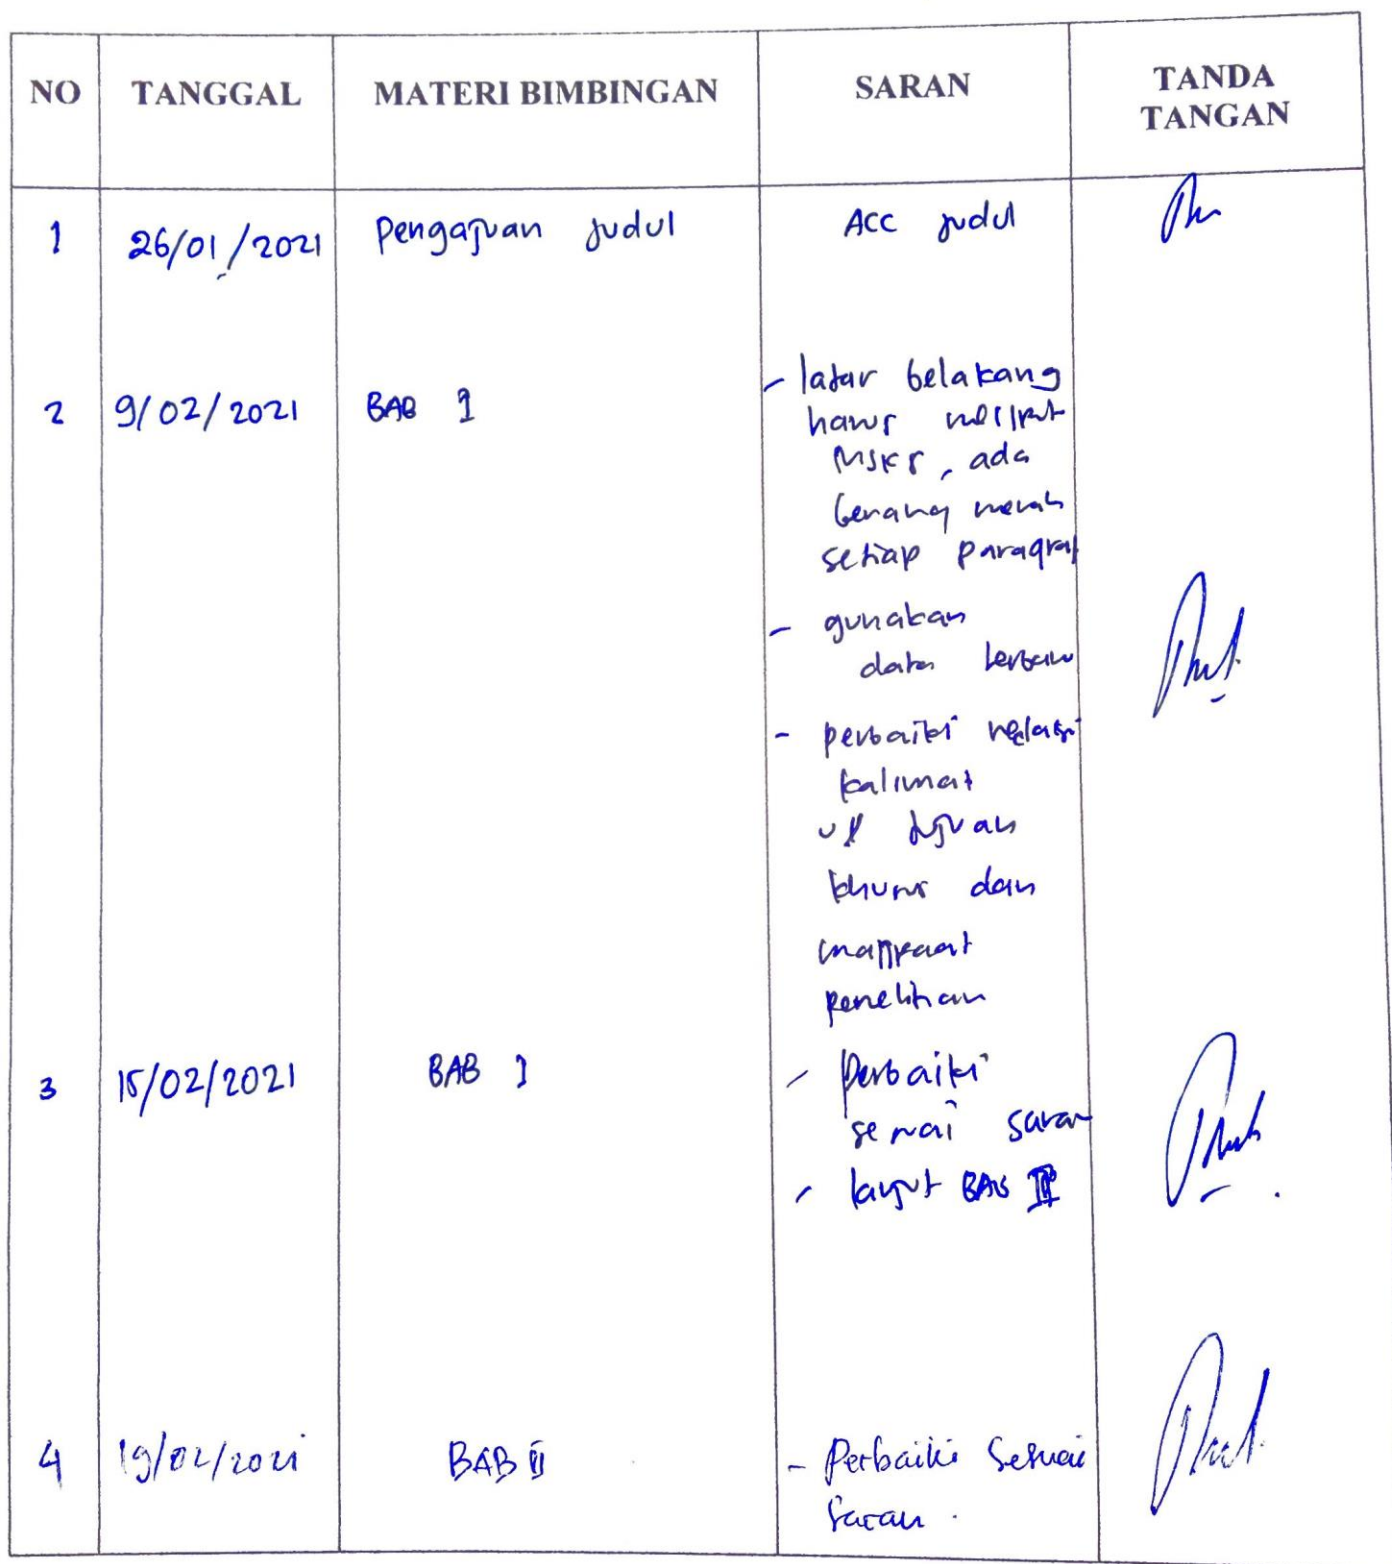 NO TANGGAL MATERI BIMBINGAN SARAN TANDA TANGAN
1 26/01/2021 Pengajuan judul ACC judul
2 9/02/2021 BAB I - latar belakang
harus meliput
MSKS, ada
benang merah
setiap paragraf
- gunakan
data terbaru
- perbaiki redaksi
kalimat
u/ tujuan
khusus dan
manfaat
penelitian
3 15/02/2021 BAB I - perbaiki
sesuai saran
- lanjut BAB II
4 19/02/2021 BAB II - Perbaiki Sesuai
Saran.